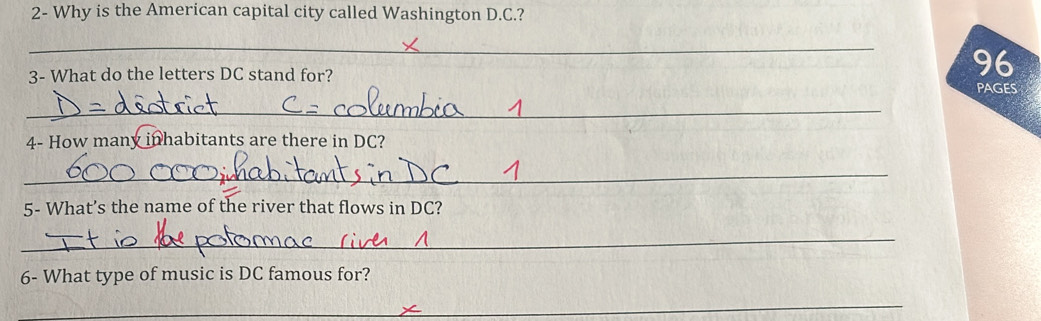 2- Why is the American capital city called Washington D.C.?
x
96
PAGES
3- What do the letters DC stand for?
D = district C = columbia 1
4- How many inhabitants are there in DC?
600 000 inhabitants in DC 1
5- What's the name of the river that flows in DC?
It is the potomac river 1
6- What type of music is DC famous for?
x